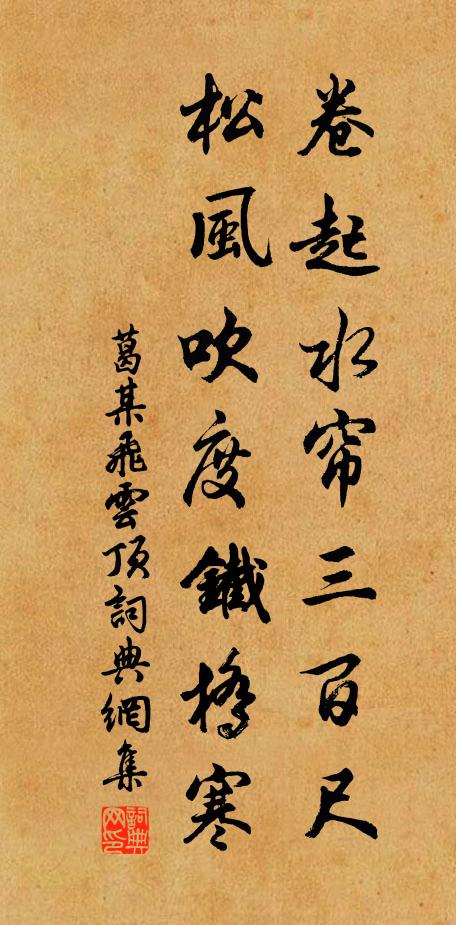 卷起水帘三百尺
松風吹度鐵橋寒
葛某飛雲頂詞典網集
詞典網印